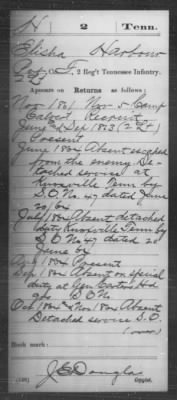 H 2 Tenn.
Elisha Harbour
Co. F, 2 Reg't Tennessee Infantry.
Appears on Returns as follows:
Nov 1861 Nov 5 Camp
Calvert Recruit
June & Sep 1862
Present
June 1862 Absent escaped
from the enemy De-
tached service at
Knoxville Tenn by
S.O. No 47 dated June
20/62
July 1862 Absent detached
duty Knoxville Tenn by
S.O. No 47 dated 20
June 62
Aug 1862 Present
Sep 1862 Absent on special
duty at Gen Carter Hd
Qrs S.O. No
Oct 1862 & Nov 1862 Absent
Detached service S.O.
(over)
Book mark:
J.E. Douglas
(546) Copyist.